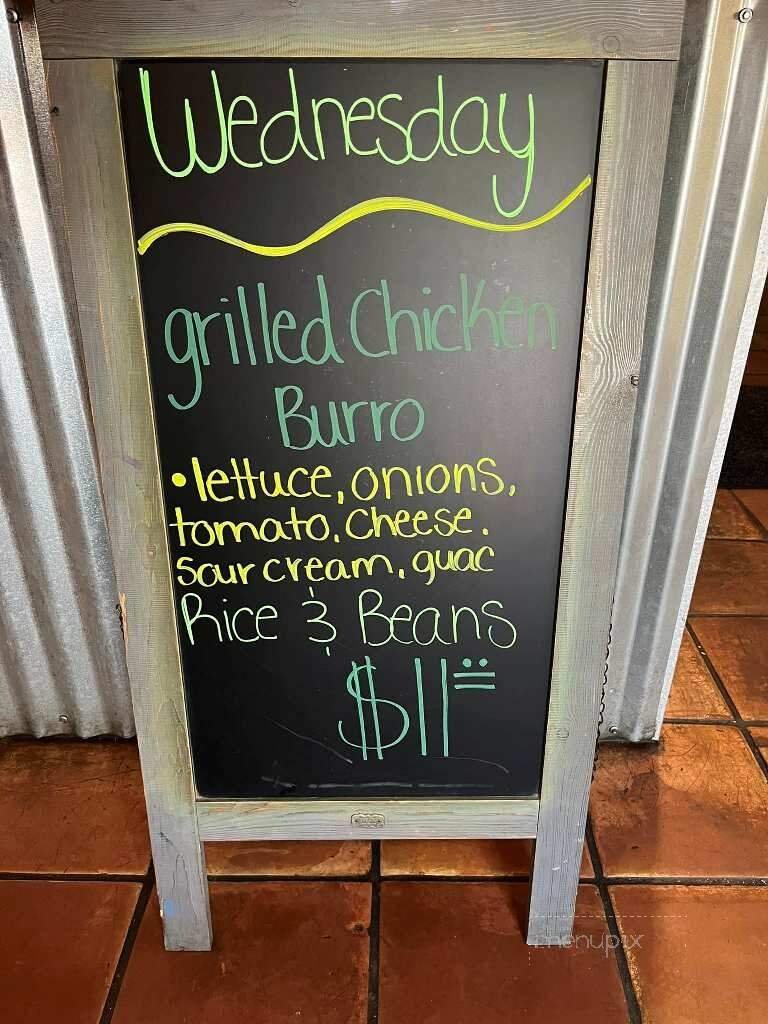 Wednesday
grilled Chicken
Burro
• lettuce, onions,
tomato, cheese.
Sour cream, guac
Rice & Beans
$11
menupix